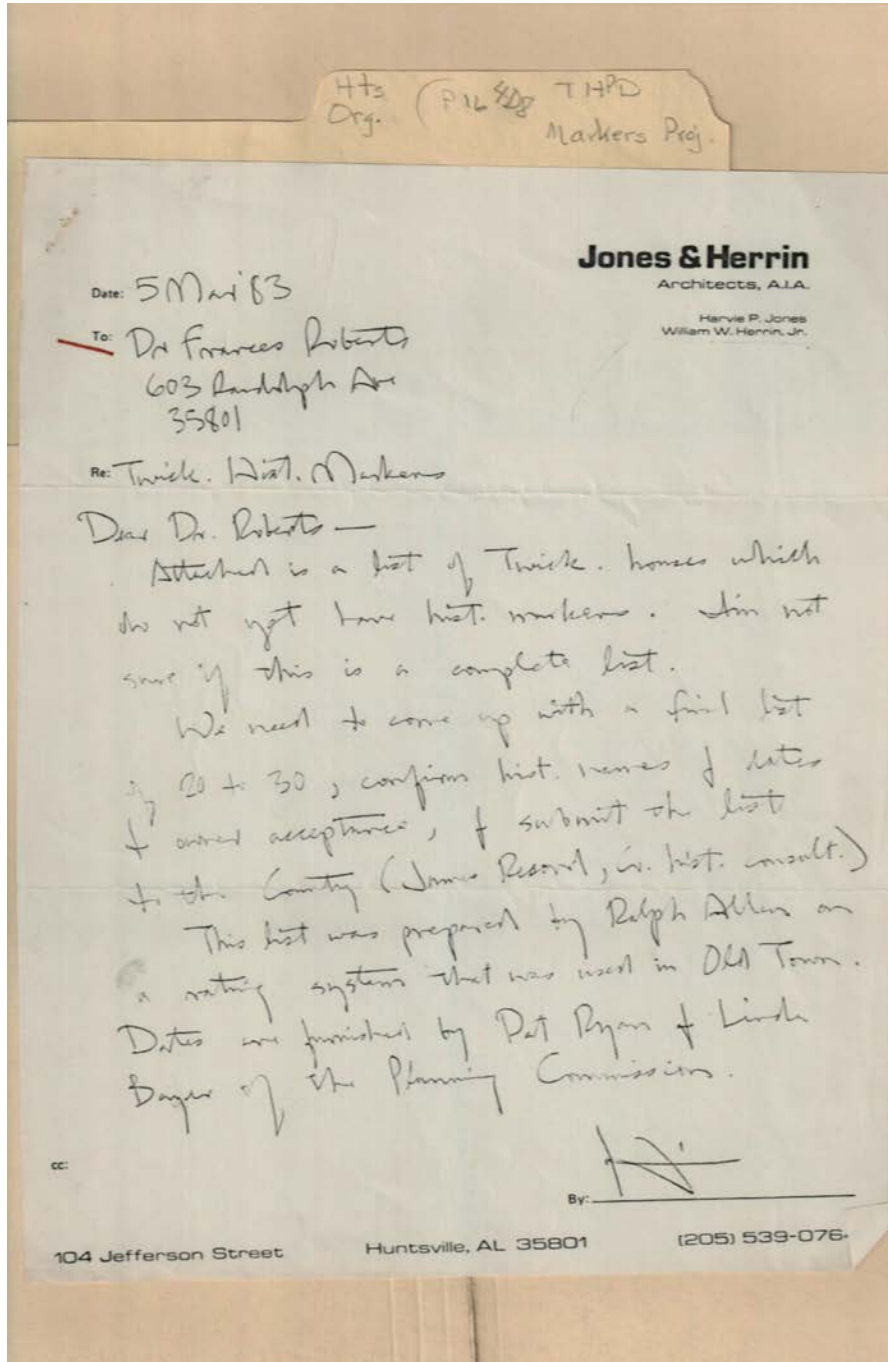 Hts THPD
Org. Markers Proj.
Jones & Herrin
Architects, A.I.A.
Harvie P. Jones
William W. Herrin, Jr.
Date: 5 Mar 83
To: Dr Frances Roberts
603 Randolph Ave
35801
Re: Twick. Hist. Markers
Dear Dr. Roberts —
Attached is a list of Twick. houses which
do not yet have hist. markers. I'm not
sure if this is a complete list.
We need to come up with a final list
of 20 to 30, confirm hist. names & dates
& owner acceptance, & submit the list
to the County (James Record, hist. consult.)
This list was prepared by Ralph Allen on
a rating system that was used in Old Town.
Dates are furnished by Pat Ryan & Linda
Bayer of the Planning Commission.
cc:
By:
104 Jefferson Street Huntsville, AL 35801 (205) 539-076